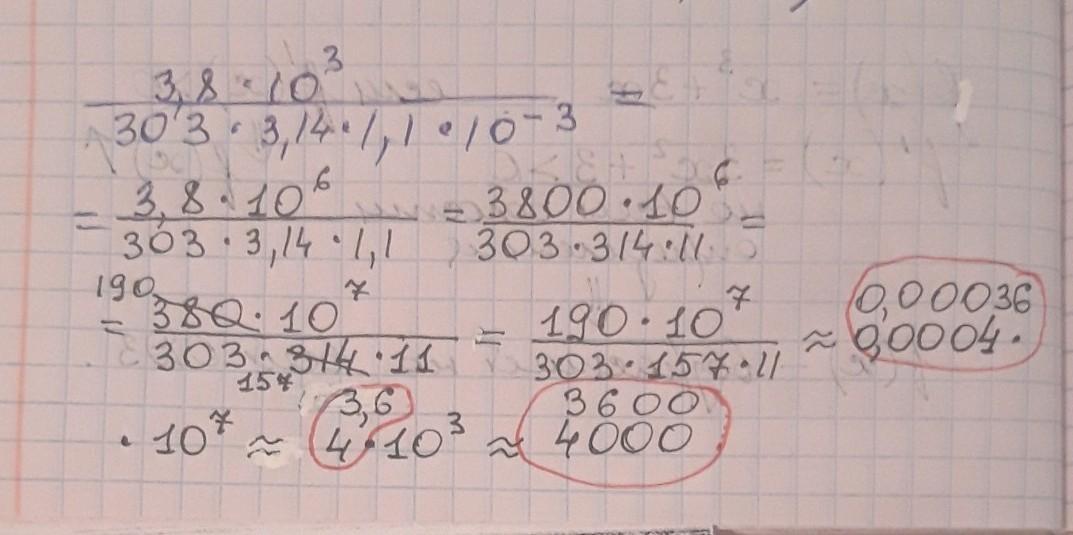 3,8 · 10³ / 303 · 3,14 · 1,1 · 10⁻³ =
= 3,8 · 10⁶ / 303 · 3,14 · 1,1 = 3800 · 10⁶ / 303 · 314 · 11 =
190
= 380 · 10⁷ / 303 · 314 · 11 = 190 · 10⁷ / 303 · 157 · 11 ≈ 0,00036 0,0004 ·
157
3,6 3600
· 10⁷ ≈ 4 · 10³ ≈ 4000